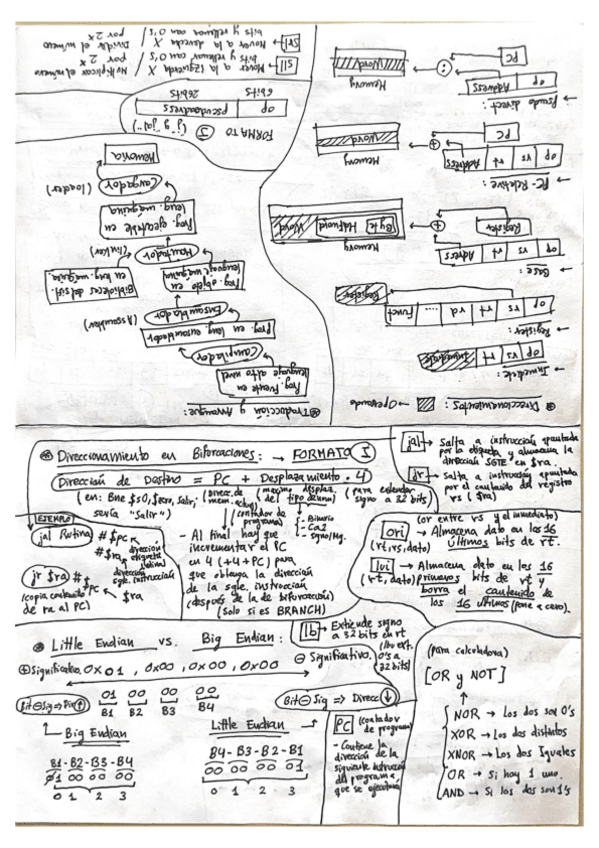 ⊛ Direccionamientos: ▨ → Operando
→ Inmediate:
op rs rt Inmediate
→ Register:
op rs rt rd ... funct
Register
→ Base:
op rs rt Adress
Register
+
Memory
Byte Halfword Word
→ PC-Relative:
op rs rt Address
PC
+
Memory
Word
→ Pseudo direct:
op Address
PC
:
Memory
Word
⊛ Traducción y Arranque:
Prog. fuente en
lenguaje alto nivel
Compilador
Prog. en leng. ensamblador
Ensamblador (Assambler)
Prog. objeto en
lenguaje máquina
Bibliotecas del sist.
en leng. máquina
Montador (linker)
Prog. ejecutable en
leng. máquina
Cargador (loader)
Memoria
FORMATO J (j y "jal")
op pseudoadress
6bits 26bits
sll → Mover a la izquierda X
bits y rellenar con 0's /
Multiplicar el número
por 2ˣ
srl → Mover a la derecha X
bits y rellenar con 0's /
Dividir el número
por 2ˣ
⊛ Direccionamiento en Bifurcaciones: → FORMATO I
Dirección de Destino = PC + Desplazamiento · 4
(en: Bne $s0, $zero, Salir,
sería "Salir")
(contador de
programa)
(para extender
signo a 32 bits)
- Binario
- Ca2
- signo/Mg.
- Al final hay que
incrementar el PC
en 4 (+4+PC) para
que obtenga la dirección
de la sgte. instrucción
(después de la de bifurcación)
(Solo si es BRANCH)
EJEMPLO
jal Rutina # $PC
dirección
etiqueta
$ra
dirección
sgte. instrucción
jr $ra #
PC
(copia contenido
de ra al PC)
$ra
jal → Salta a instrucción apuntada
por la etiqueta y almacena la
dirección SGTE en $ra.
jr → Salta a instrucción apuntada
por el contenido del registro
rs ($ra)
(or entre rs y el inmediato)
ori → Almacena dato en los 16
(rt,rs,dato) últimos bits de rt.
lui → Almacena dato en los 16
(rt, dato) primeros bits de rt y
borra el contenido de
los 16 últimos (pone a cero).
⊛ Little Endian vs. Big Endian:
lb → Extiende signo
a 32 bits en rt
(lbu ext.
0's a
32 bits)
⊕ Significativo. 0x01, 0x00, 0x00, 0x00 ⊖ Significativo.
Bit⊖Sig => Dir ↑
01 00 00 00
B1 B2 B3 B4
Bit⊖Sig => Direcc ↓
Big Endian
B1-B2-B3-B4
01 00 00 00
0 1 2 3
Little Endian
B4-B3-B2-B1
00 00 00 01
0 1 2 3
PC (contador
de programa)
- Contiene la
dirección de la
siguiente instrucción
del programa
que se ejecutará
(para calculadora)
[OR y NOT]
NOR → Los dos son 0's
XOR → Los dos distintos
XNOR → Los dos Iguales
OR → Si hay 1 uno.
AND → Si los dos son 1's